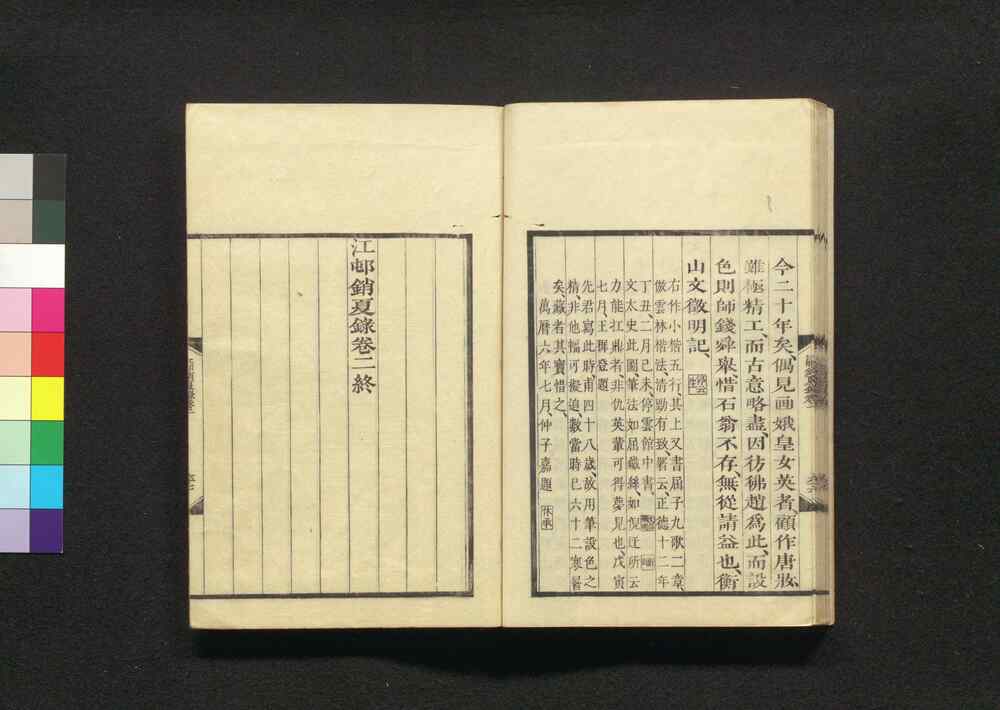 今二十年矣、偶見画娥皇女英者、顧作唐妝、
雖極精工、而古意略盡、因彷彿趙為此、而設
色則師錢舜舉、惜石翁不存、無從請益也、衡
山文徵明記、
右作小楷五行其上又書屈子九歌二章、
倣雲林楷法、清勁有致、署云、正德十二年
丁丑、二月己未、停雲館中書、
文太史此圖、筆法如屈鐵絲、如倪迂所云
力能扛鼎者、非仇英輩可得夢見也、戊寅
七月、王穉登題
先君寫此時、甫四十八歲、故用筆設色之
精、非他幅可擬、追數當時已六十二寒暑
矣、藏者其寶惜之、
萬曆六年七月、仲子嘉題
江邨銷夏錄卷二終